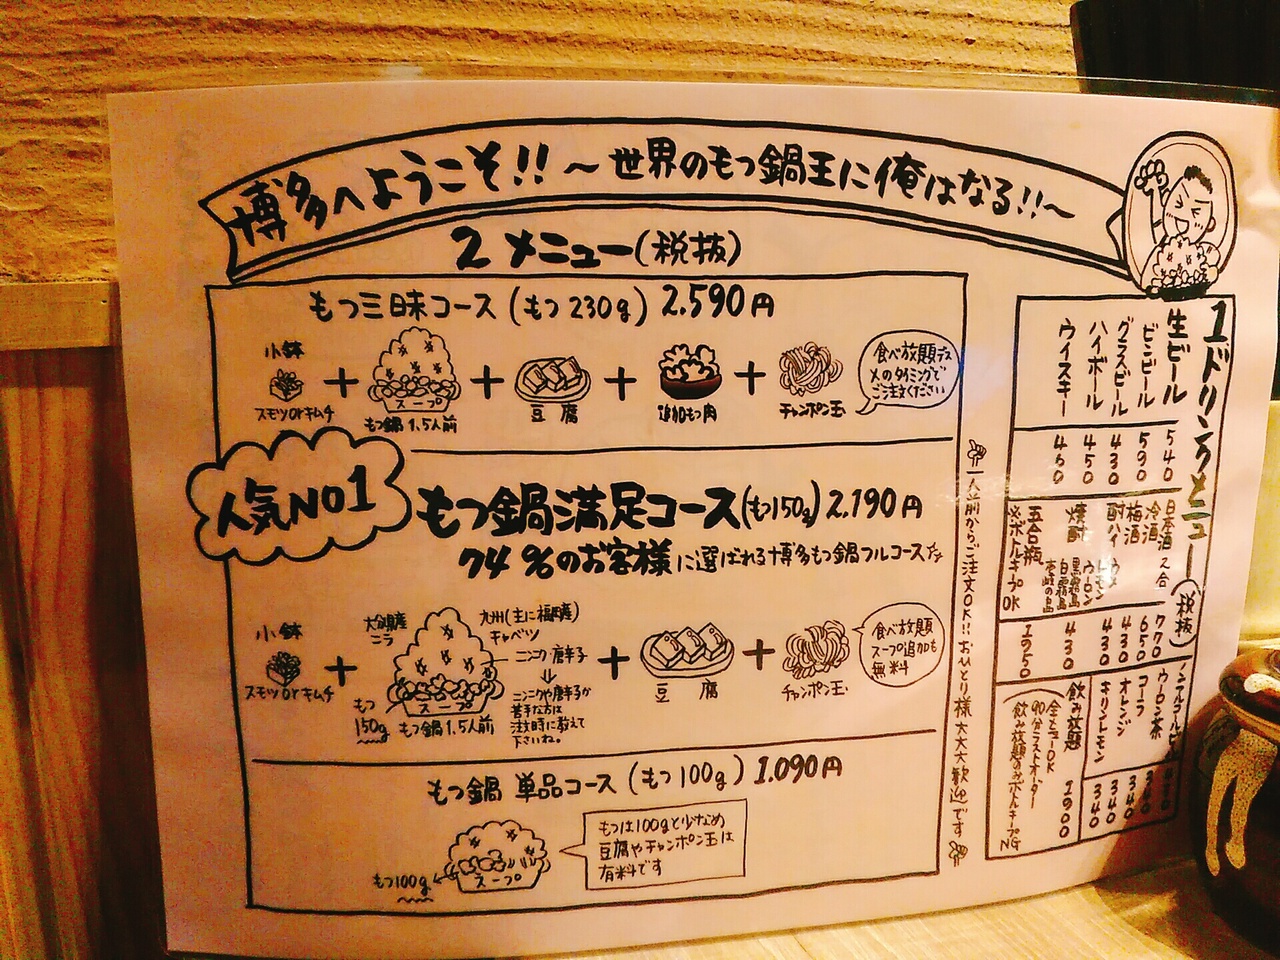 博多へようこそ!! ～世界のもつ鍋王に俺はなる!!～
2 メニュー(税抜)
もつ三昧コース (もつ 230g) 2.590円
小鉢
スモツorキムチ
+
スープ
もつ鍋 1.5人前
+
豆腐
+
追加もつ肉
+
チャンポン玉
食べ放題デス
〆のタイミングで
ご注文ください
人気NO1
もつ鍋満足コース(もつ150g) 2.190円
74%のお客様に選ばれる博多もつ鍋フルコースです
小鉢
スモツorキムチ
+
大分県産
ニラ
九州(主に福岡産)
キャベツ
ニンニク 唐辛子
↓
ニンニクや唐辛子が
苦手な方は
注文時に教えて
下さいね。
スープ
もつ
150g
もつ鍋 1.5人前
+
豆腐
+
チャンポン玉
食べ放題
スープ追加も
無料
もつ鍋 単品コース (もつ 100g) 1.090円
スープ
もつ100g
もつは100gと少なめ
豆腐やチャンポン玉は
有料です
一人前からご注文OK!!おひとり様大大大歓迎です
1ドリンクメニュー(税抜)
生ビール 540
ビンビール 590
グラスビール 430
ハイボール 450
ウイスキー 460
日本酒 2合 770
冷酒 650
梅酒 430
酎ハイ ウメ レモン ウーロン 430
焼酎 黒霧島 白霧島 壱岐の島 430
五合瓶 1950
※ボトルキープOK
ウーロン茶
コーラ
オレンジ 340
キリンレモン 340
飲み放題 1900
全メニューOK
90分ラストオーダー
飲み放題のみボトルキープNG